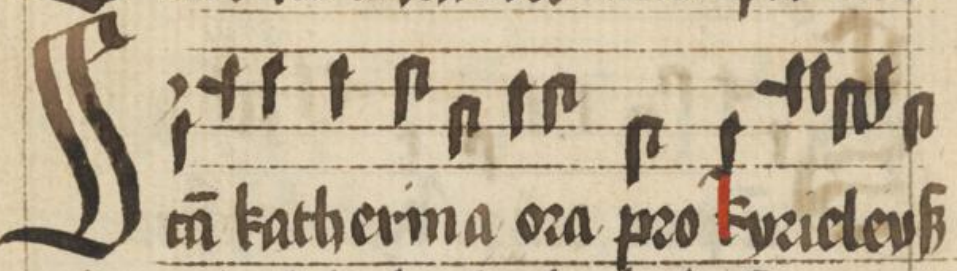 Scta katherina ora pro kyrieleyß